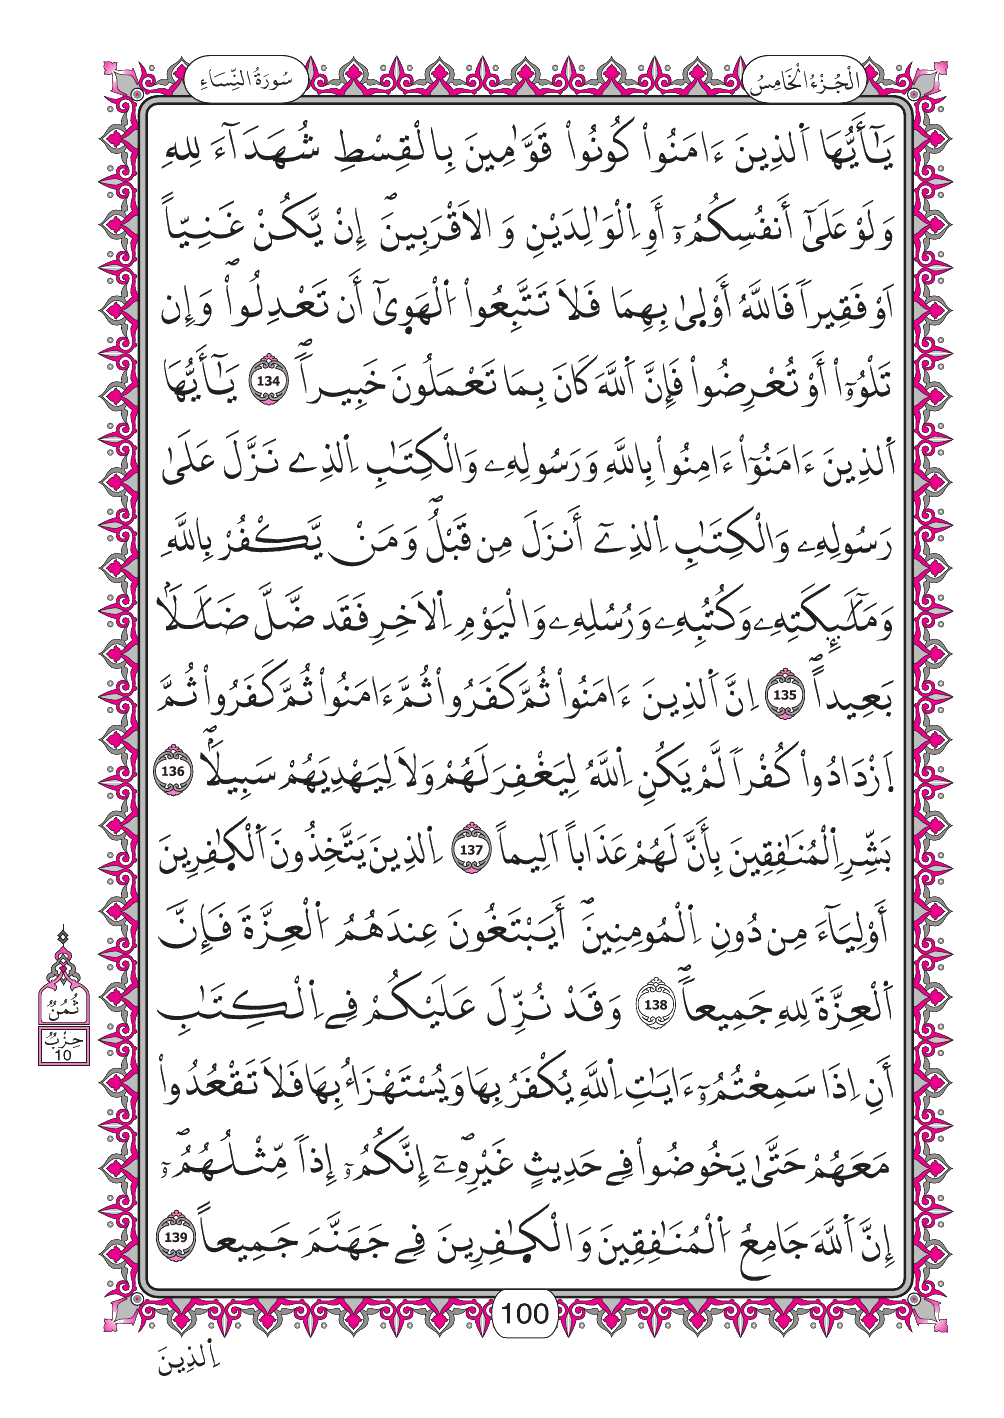 الْجُزْءُ الْخَامِسُ
سُورَةُ النِّسَاءِ
يَٰٓأَيُّهَا اَ۬لذِينَ ءَامَنُواْ كُونُواْ قَوَّٰمِينَ بِالْقِسْطِ شُهَدَآءَ لِلهِ
وَلَوْ عَلَىٰٓ أَنفُسِكُمُۥٓ أَوِ اِ۬لْوَٰلِدَيْنِ وَالَاقْرَبِينَۖ إِنْ يَّكُنْ غَنِيّاً
اَوْ فَقِيراٗ فَاللَّهُ أَوْل۪ىٰ بِهِمَا فَلَا تَتَّبِعُواْ اُ۬لْهَو۪ىٰٓ أَن تَعْدِلُواْۖ وَإِن
تَلْوُۥٓاْ أَوْ تُعْرِضُواْ فَإِنَّ اَ۬للَّهَ كَانَ بِمَا تَعْمَلُونَ خَبِيراٗۖ 134 يَٰٓأَيُّهَا
اَ۬لذِينَ ءَامَنُوٓاْ ءَامِنُواْ بِاللَّهِ وَرَسُولِهِۦ وَالْكِتَٰبِ اِ۬لذِے نَزَّلَ عَلَىٰ
رَسُولِهِۦ وَالْكِتَٰبِ اِ۬لذِےٓ أَنزَلَ مِن قَبْلُۖ وَمَنْ يَّكْفُرْ بِاللَّهِ
وَمَلَٰٓئِكَتِهِۦ وَكُتُبِهِۦ وَرُسُلِهِۦ وَالْيَوْمِ اِ۬لَاخِرِ فَقَد ضَّلَّ ضَلَٰلَاۢ
بَعِيداًۖ 135 اِنَّ اَ۬لذِينَ ءَامَنُواْ ثُمَّ كَفَرُواْ ثُمَّ ءَامَنُواْ ثُمَّ كَفَرُواْ ثُمَّ
اَ۪زْدَادُواْ كُفْراٗ لَّمْ يَكُنِ اِ۬للَّهُ لِيَغْفِرَ لَهُمْ وَلَا لِيَهْدِيَهُمْ سَبِيلَاۢۖ 136
بَشِّرِ اِ۬لْمُنَٰفِقِينَ بِأَنَّ لَهُمْ عَذَاباً اَلِيماً 137 اِ۬لذِينَ يَتَّخِذُونَ اَ۬لْكٰ۪فِرِينَ
أَوْلِيَآءَ مِن دُونِ اِ۬لْمُومِنِينَۖ أَيَبْتَغُونَ عِندَهُمُ اُ۬لْعِزَّةَ فَإِنَّ
اَ۬لْعِزَّةَ لِلهِ جَمِيعاٗۖ 138 وَقَدْ نُزِّلَ عَلَيْكُمْ فِے اِ۬لْكِتَٰبِ
أَنِ اِذَا سَمِعْتُمُۥٓ ءَايَٰتِ اِ۬للَّهِ يُكْفَرُ بِهَا وَيُسْتَهْزَأُ بِهَا فَلَا تَقْعُدُواْ
مَعَهُمْ حَتَّىٰ يَخُوضُواْ فِے حَدِيثٍ غَيْرِهِۦٓۖ إِنَّكُمُۥٓ إِذاٗ مِّثْلُهُمُۥٓۖ
إِنَّ اَ۬للَّهَ جَامِعُ اُ۬لْمُنَٰفِقِينَ وَالْكٰ۪فِرِينَ فِے جَهَنَّمَ جَمِيعاً 139
ثُمُنٌ
حِزْبٌ
10
100
اِ۬لذِينَ